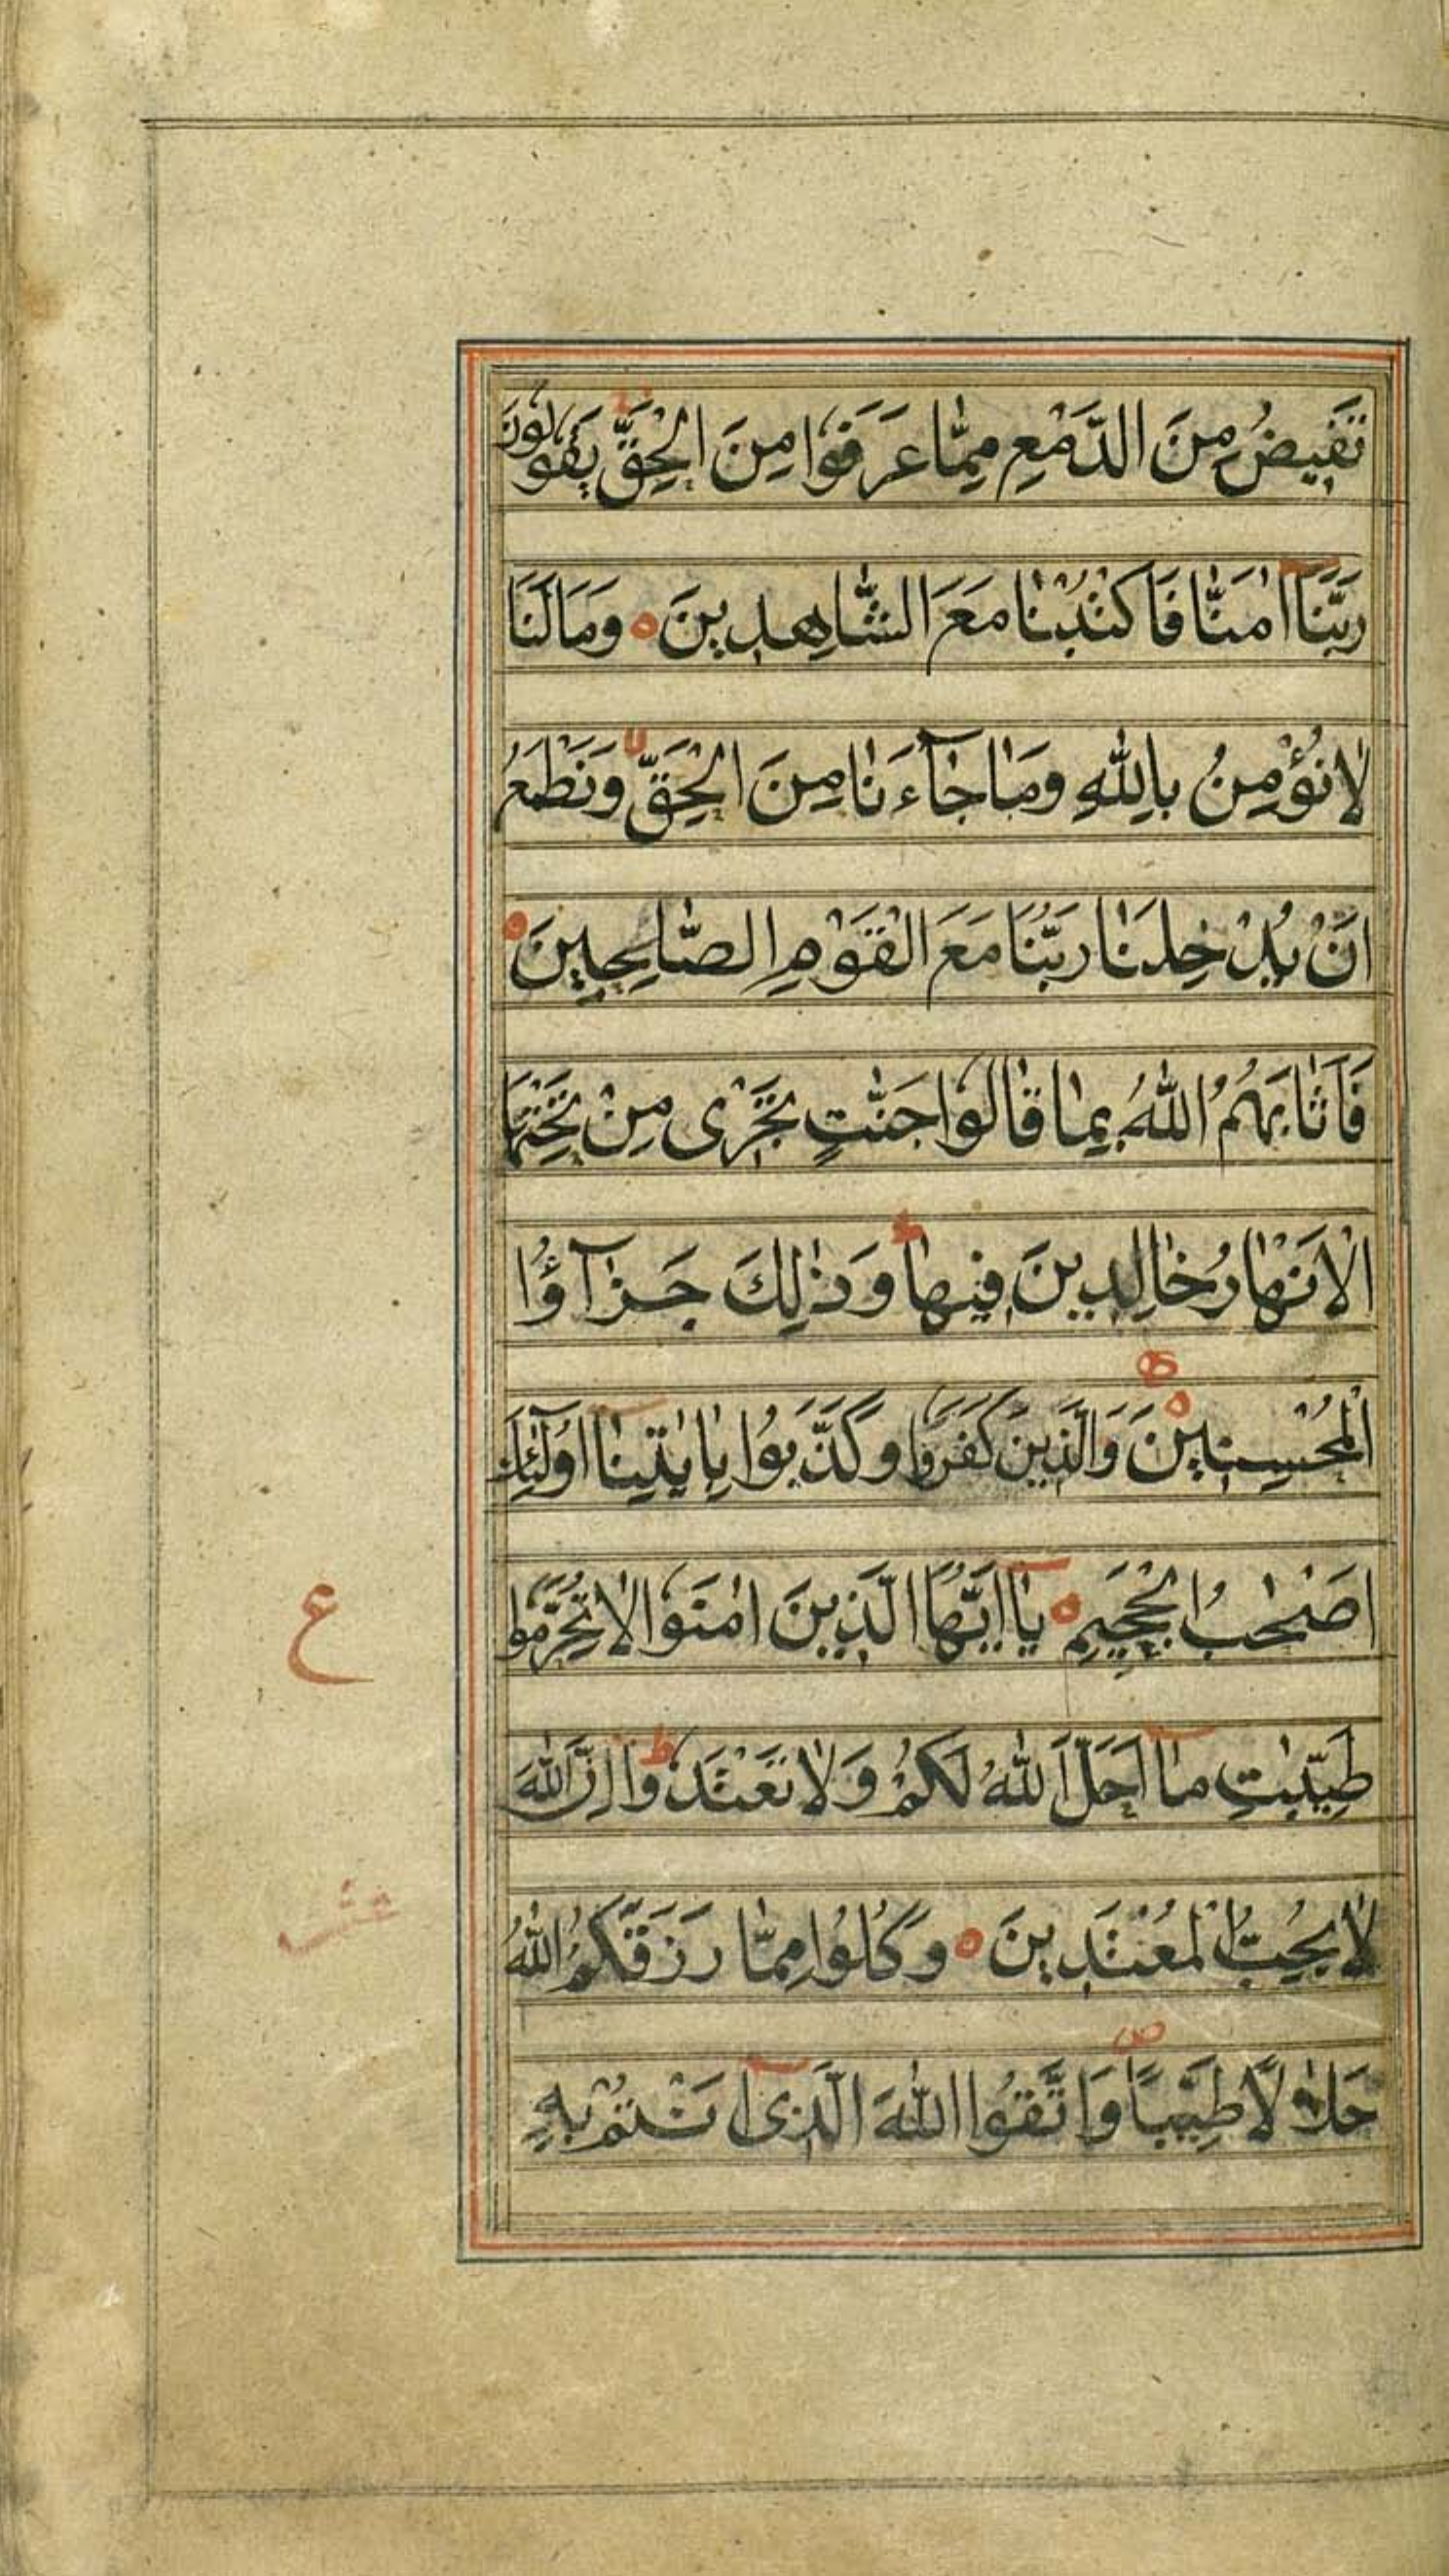 تَفِيضُ مِنَ الدَّمْعِ مِمَّا عَرَفُوا مِنَ الْحَقِّ يَقُولُونَ
رَبَّنَا اٰمَنَّا فَاكْتُبْنَا مَعَ الشَّاهِدِينَ ه وَمَا لَنَا
لَا نُؤْمِنُ بِاللّٰهِ وَمَا جَآءَنَا مِنَ الْحَقِّ وَنَطْمَعُ
اَنْ يُدْخِلَنَا رَبُّنَا مَعَ الْقَوْمِ الصَّالِحِينَ ه
فَاَثَابَهُمُ اللّٰهُ بِمَا قَالُوا جَنّٰتٍ تَجْرٰى مِنْ تَحْتِهَا
الْاَنْهَارُ خَالِدِينَ فِيهَا وَذٰلِكَ جَزَآؤُا
الْمُحْسِنِينَ ه وَالَّذِينَ كَفَرُوا وَكَذَّبُوا بِاٰيٰتِنَا اُولٰٓئِكَ
اَصْحٰبُ الْجَحِيمِ ه يَا اَيُّهَا الَّذِينَ اٰمَنُوا لَا تُحَرِّمُوا
ع
طَيِّبٰتِ مَا اَحَلَّ اللّٰهُ لَكُمْ وَلَا تَعْتَدُوا ط اِنَّ اللّٰهَ
لَا يُحِبُّ الْمُعْتَدِينَ ه وَكُلُوا مِمَّا رَزَقَكُمُ اللّٰهُ
عشر
حَلٰلًا طَيِّبًا ص وَاتَّقُوا اللّٰهَ الَّذِى اَنْتُمْ بِهِ